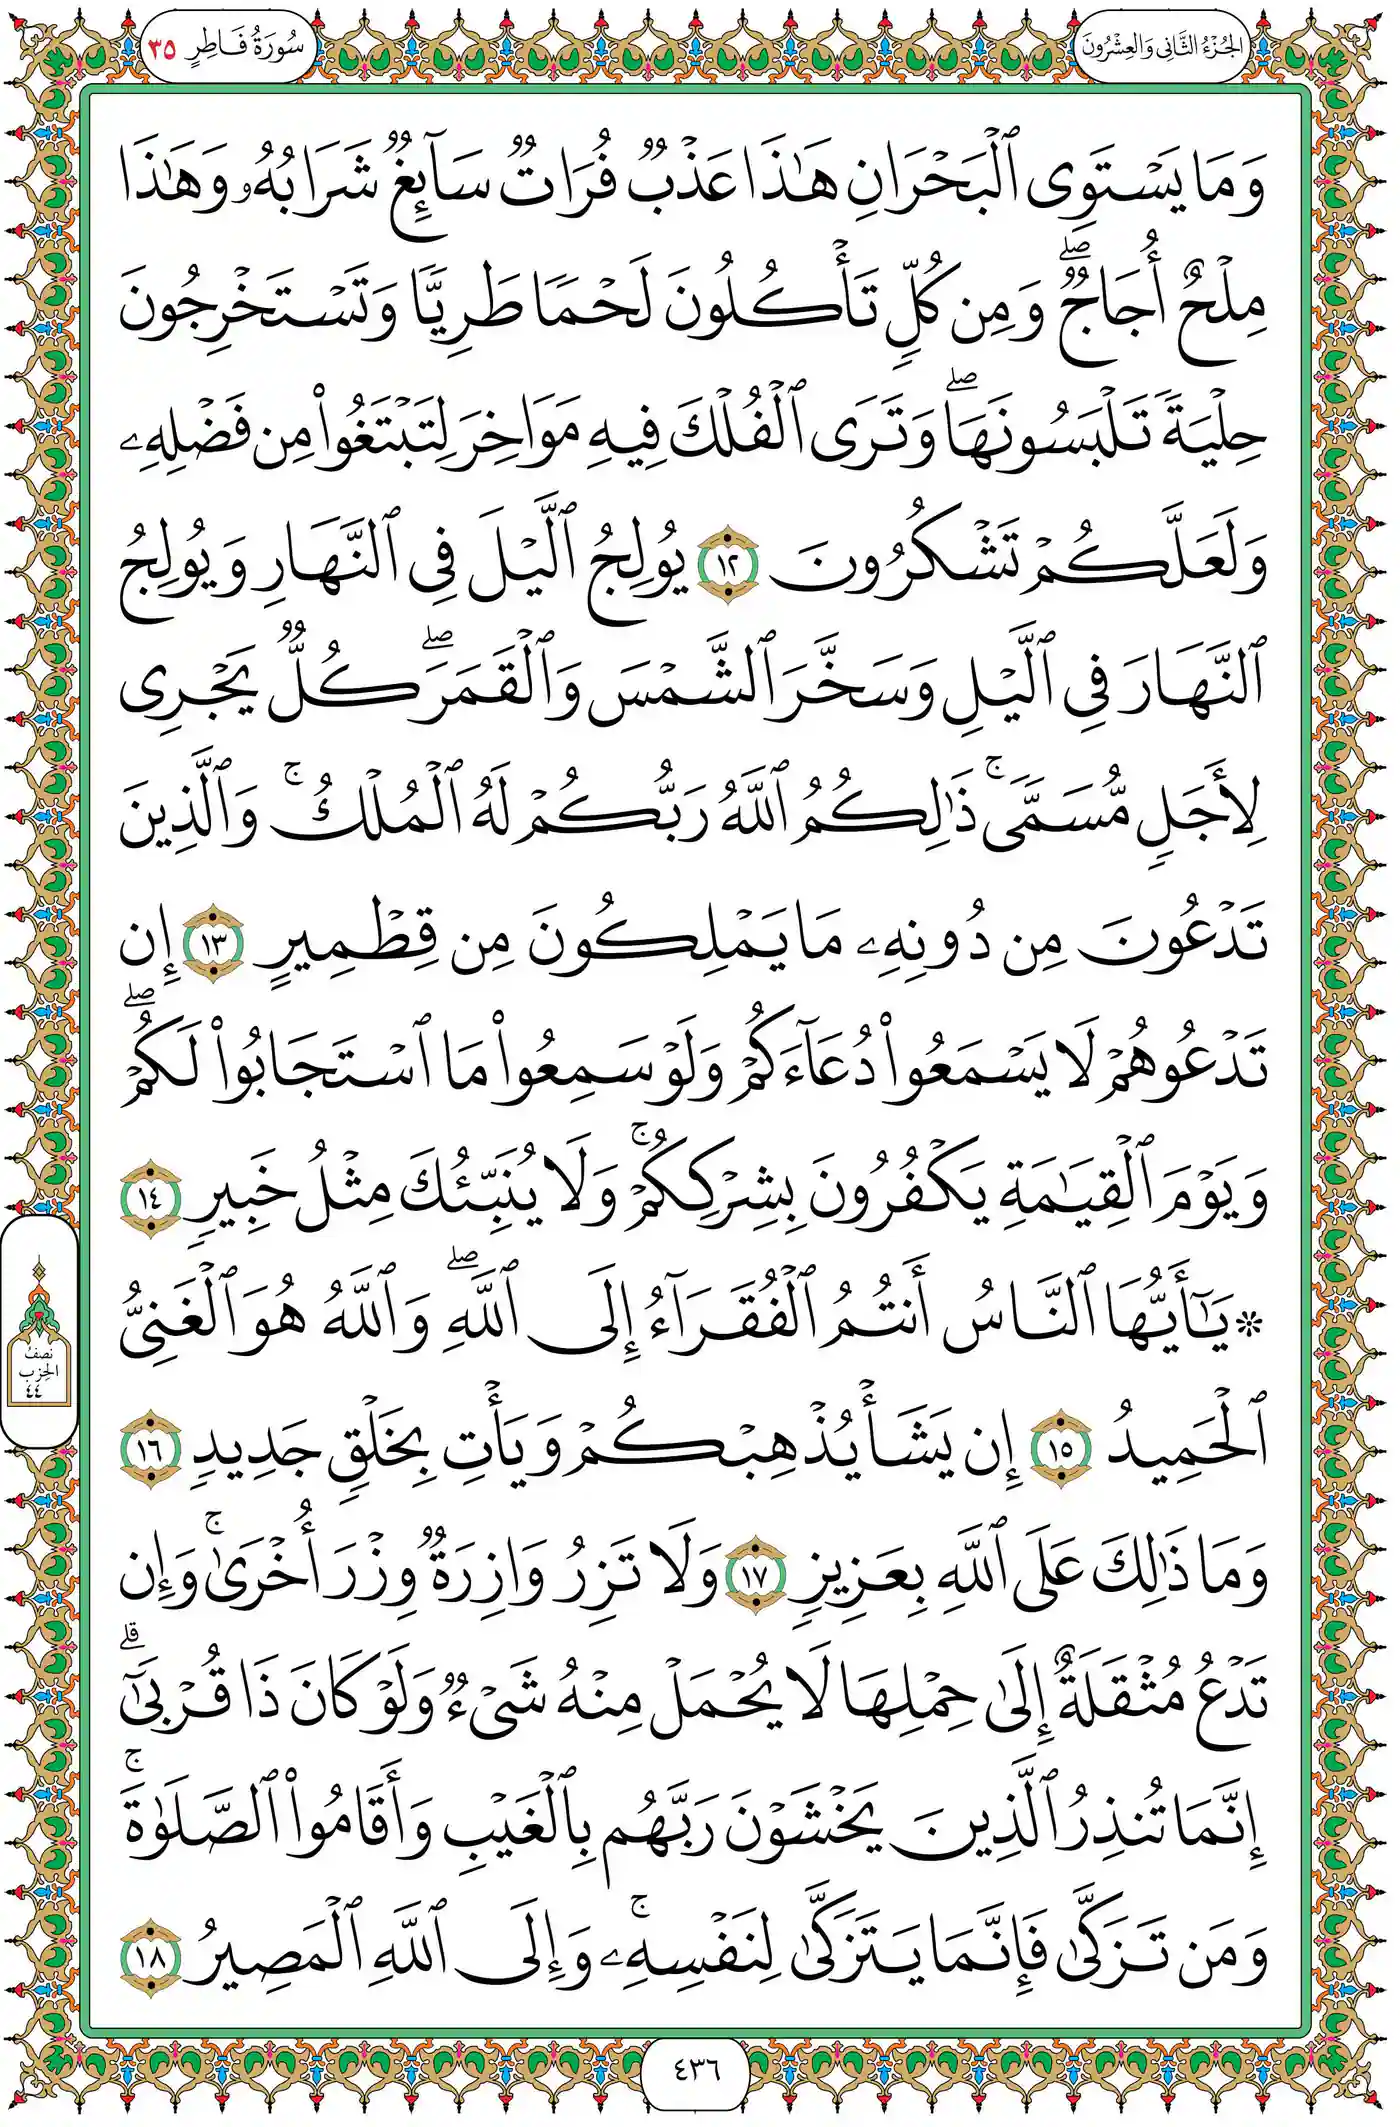 الجُزْءُ الثَّانِي وَالعِشْرُونَ
سُورَةُ فَاطِرٍ ٣٥
وَمَا يَسْتَوِى ٱلْبَحْرَانِ هَـٰذَا عَذْبٌ فُرَاتٌ سَآئِغٌ شَرَابُهُۥ وَهَـٰذَا
مِلْحٌ أُجَاجٌ ۖ وَمِن كُلٍّ تَأْكُلُونَ لَحْمًا طَرِيًّا وَتَسْتَخْرِجُونَ
حِلْيَةً تَلْبَسُونَهَا ۖ وَتَرَى ٱلْفُلْكَ فِيهِ مَوَاخِرَ لِتَبْتَغُوا۟ مِن فَضْلِهِۦ
وَلَعَلَّكُمْ تَشْكُرُونَ ١٢ يُولِجُ ٱلَّيْلَ فِى ٱلنَّهَارِ وَيُولِجُ
ٱلنَّهَارَ فِى ٱلَّيْلِ وَسَخَّرَ ٱلشَّمْسَ وَٱلْقَمَرَ ۖ كُلٌّ يَجْرِى
لِأَجَلٍ مُّسَمًّى ۚ ذَٰلِكُمُ ٱللَّهُ رَبُّكُمْ لَهُ ٱلْمُلْكُ ۚ وَٱلَّذِينَ
تَدْعُونَ مِن دُونِهِۦ مَا يَمْلِكُونَ مِن قِطْمِيرٍ ١٣ إِن
تَدْعُوهُمْ لَا يَسْمَعُوا۟ دُعَآءَكُمْ وَلَوْ سَمِعُوا۟ مَا ٱسْتَجَابُوا۟ لَكُمْ ۖ
وَيَوْمَ ٱلْقِيَـٰمَةِ يَكْفُرُونَ بِشِرْكِكُمْ ۚ وَلَا يُنَبِّئُكَ مِثْلُ خَبِيرٍ ١٤
۞ يَـٰٓأَيُّهَا ٱلنَّاسُ أَنتُمُ ٱلْفُقَرَآءُ إِلَى ٱللَّهِ ۖ وَٱللَّهُ هُوَ ٱلْغَنِىُّ
ٱلْحَمِيدُ ١٥ إِن يَشَأْ يُذْهِبْكُمْ وَيَأْتِ بِخَلْقٍ جَدِيدٍ ١٦
وَمَا ذَٰلِكَ عَلَى ٱللَّهِ بِعَزِيزٍ ١٧ وَلَا تَزِرُ وَازِرَةٌ وِزْرَ أُخْرَىٰ ۚ وَإِن
تَدْعُ مُثْقَلَةٌ إِلَىٰ حِمْلِهَا لَا يُحْمَلْ مِنْهُ شَىْءٌ وَلَوْ كَانَ ذَا قُرْبَىٰٓ ۗ
إِنَّمَا تُنذِرُ ٱلَّذِينَ يَخْشَوْنَ رَبَّهُم بِٱلْغَيْبِ وَأَقَامُوا۟ ٱلصَّلَوٰةَ ۚ
وَمَن تَزَكَّىٰ فَإِنَّمَا يَتَزَكَّىٰ لِنَفْسِهِۦ ۚ وَإِلَى ٱللَّهِ ٱلْمَصِيرُ ١٨
نِصْفُ
الحِزْبِ
٤٤
٤٣٦